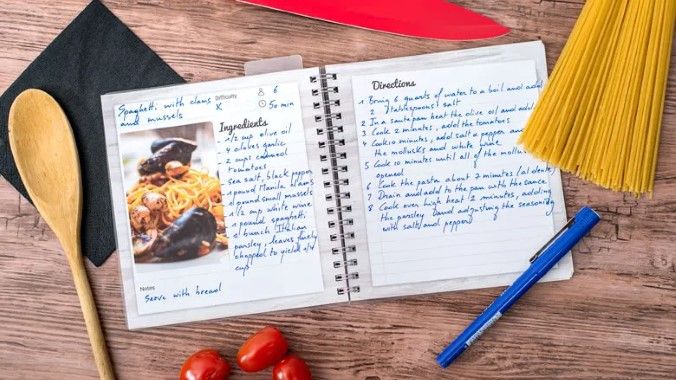 Spaghetti with clams
and mussels
Difficulty
X
6
50 min
Ingredients
- 1/2 cup olive oil
- 4 cloves garlic
- 2 cups
tomatoes
- sea salt, black pepper
- 1 pound Manila clams
- 1 pound small mussels
- 1/2 cup white wine
- 1 pound spaghetti
- 1 bunch Italian
parsley, leaves finely
chopped to yield 3/4
cup
Notes
Serve with bread
Directions
1 Bring 6 quarts of water to a boil and add
2 tablespoons salt
2 In a saute pan heat the olive oil and add
3 Cook 2 minutes, add the tomatoes
4 Cook 10 minutes, add salt & pepper and
the mollusks and white wine
5 Cook 10 minutes until all of the mollusks
opened
6 Cook the pasta about 7 minutes (al dente)
7 Drain and add to the pan with the sauce
8 Cook over high heat 2 minutes, adding
the parsley and adjusting the seasoning
with salt and pepper